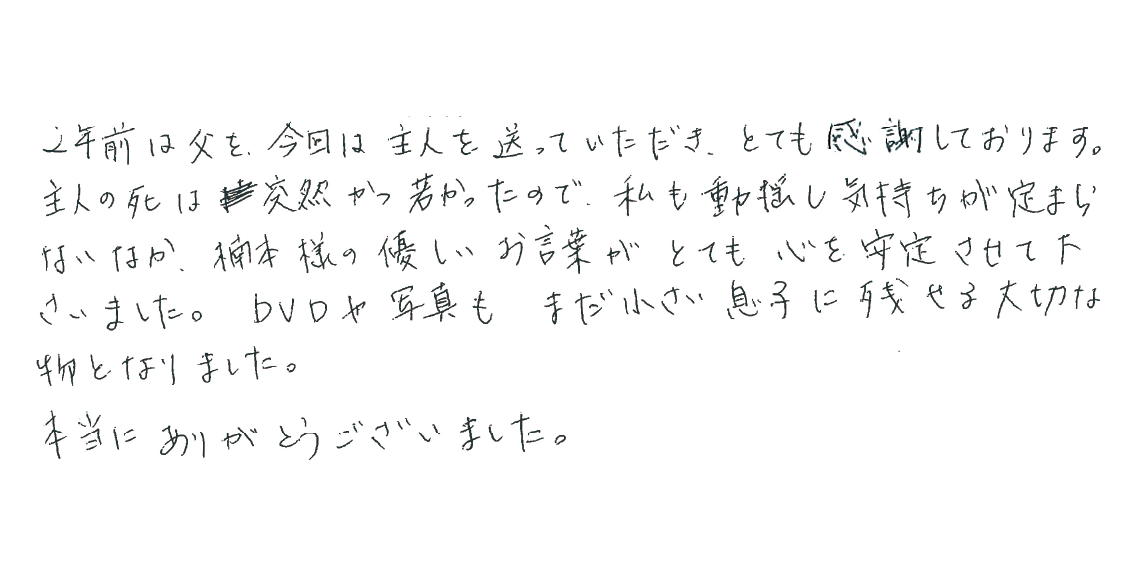 2年前は父を、今回は主人を送っていただき、とても感謝しております。
主人の死は突然かつ若かったので、私も動揺し気持ちが定まら
ないなか、楠本様の優しいお言葉がとても心を安定させて下
さいました。DVDや写真もまだ小さい息子に残せる大切な
物となりました。
本当にありがとうございました。